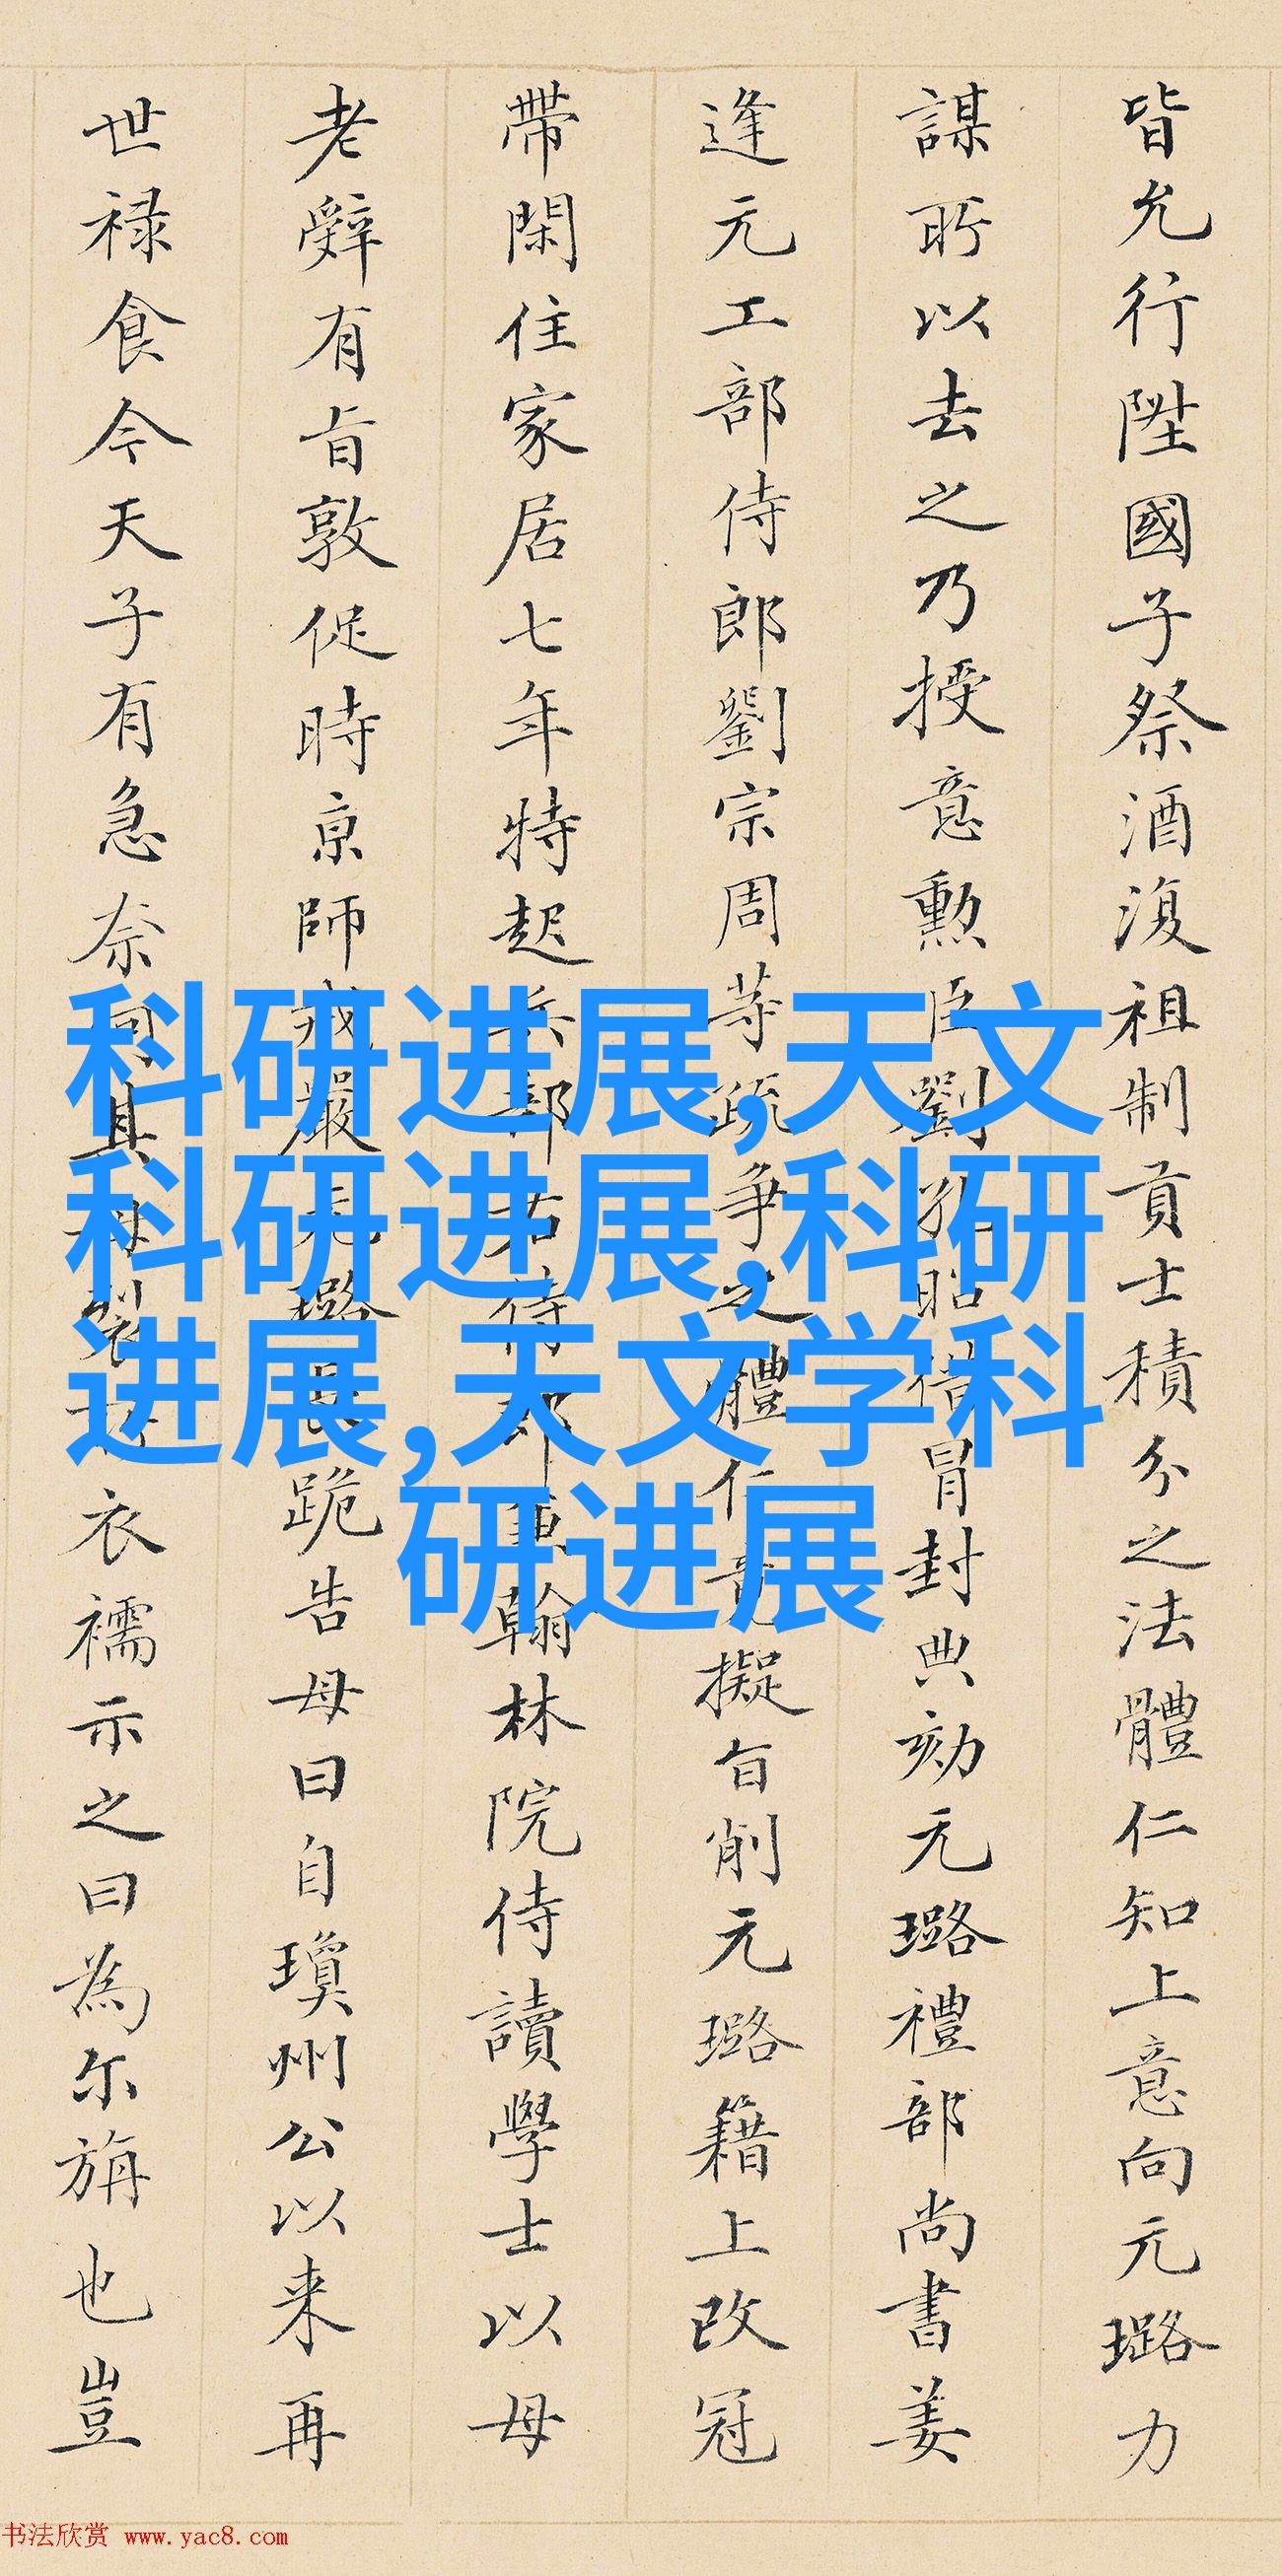 皆允行陞國子祭酒復祖制貢士積分之法體仁知上意向元璐力
謀所以去之乃授意勲臣劉孔昭借冐封典劾元璐禮部尚書姜
逢元工部侍郎劉宗周等疏爭之體仁竟擬旨削元璐籍上改冠
帶閑住家居七年特起兵部右侍郎兼翰林院侍讀學士以母
老辤有旨敦促時京師戒嚴元璐長跪告母曰自瓊州公以来再
世禄食今天子有急奈何其母裂衣襦示之曰為尔旃也豈
科研进展,天文
科研进展,科研
进展,天文学科
研进展
书法欣赏 www.yac8.com